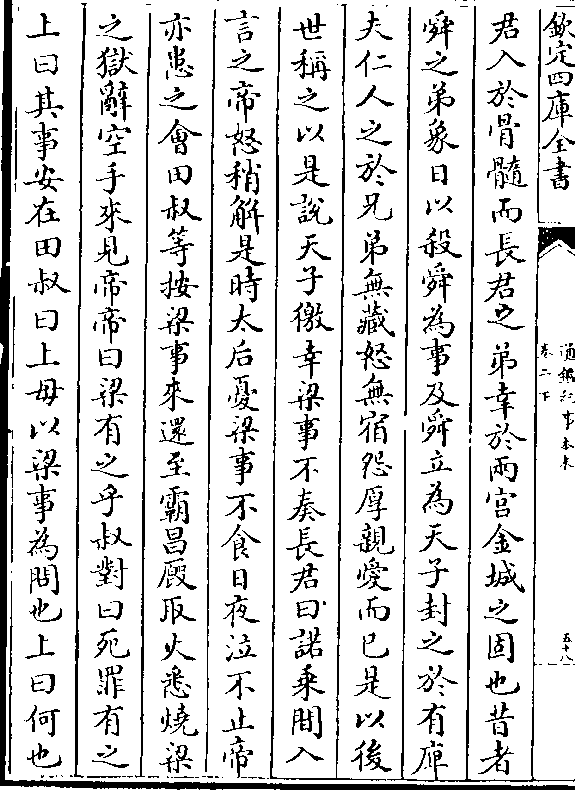 欽定四庫全書
通鑑紀事本末
卷二下
五十八
君入於骨髓而長君之弟幸於兩宮金城之固也昔者
舜之弟象日以殺舜為事及舜立為天子封之於有庳
夫仁人之於兄弟無藏怒無宿怨厚親愛而已是以後
世稱之以是說天子徼幸梁事不奏長君曰諾乘間入
言之帝怒稍解是時太后憂梁事不食日夜泣不止帝
亦患之會田叔等按梁事來還至霸昌廄取火悉燒梁
之獄辭空手來見帝帝曰梁有之乎叔對曰死罪有之
上曰其事安在田叔曰上毋以梁事為問也上曰何也